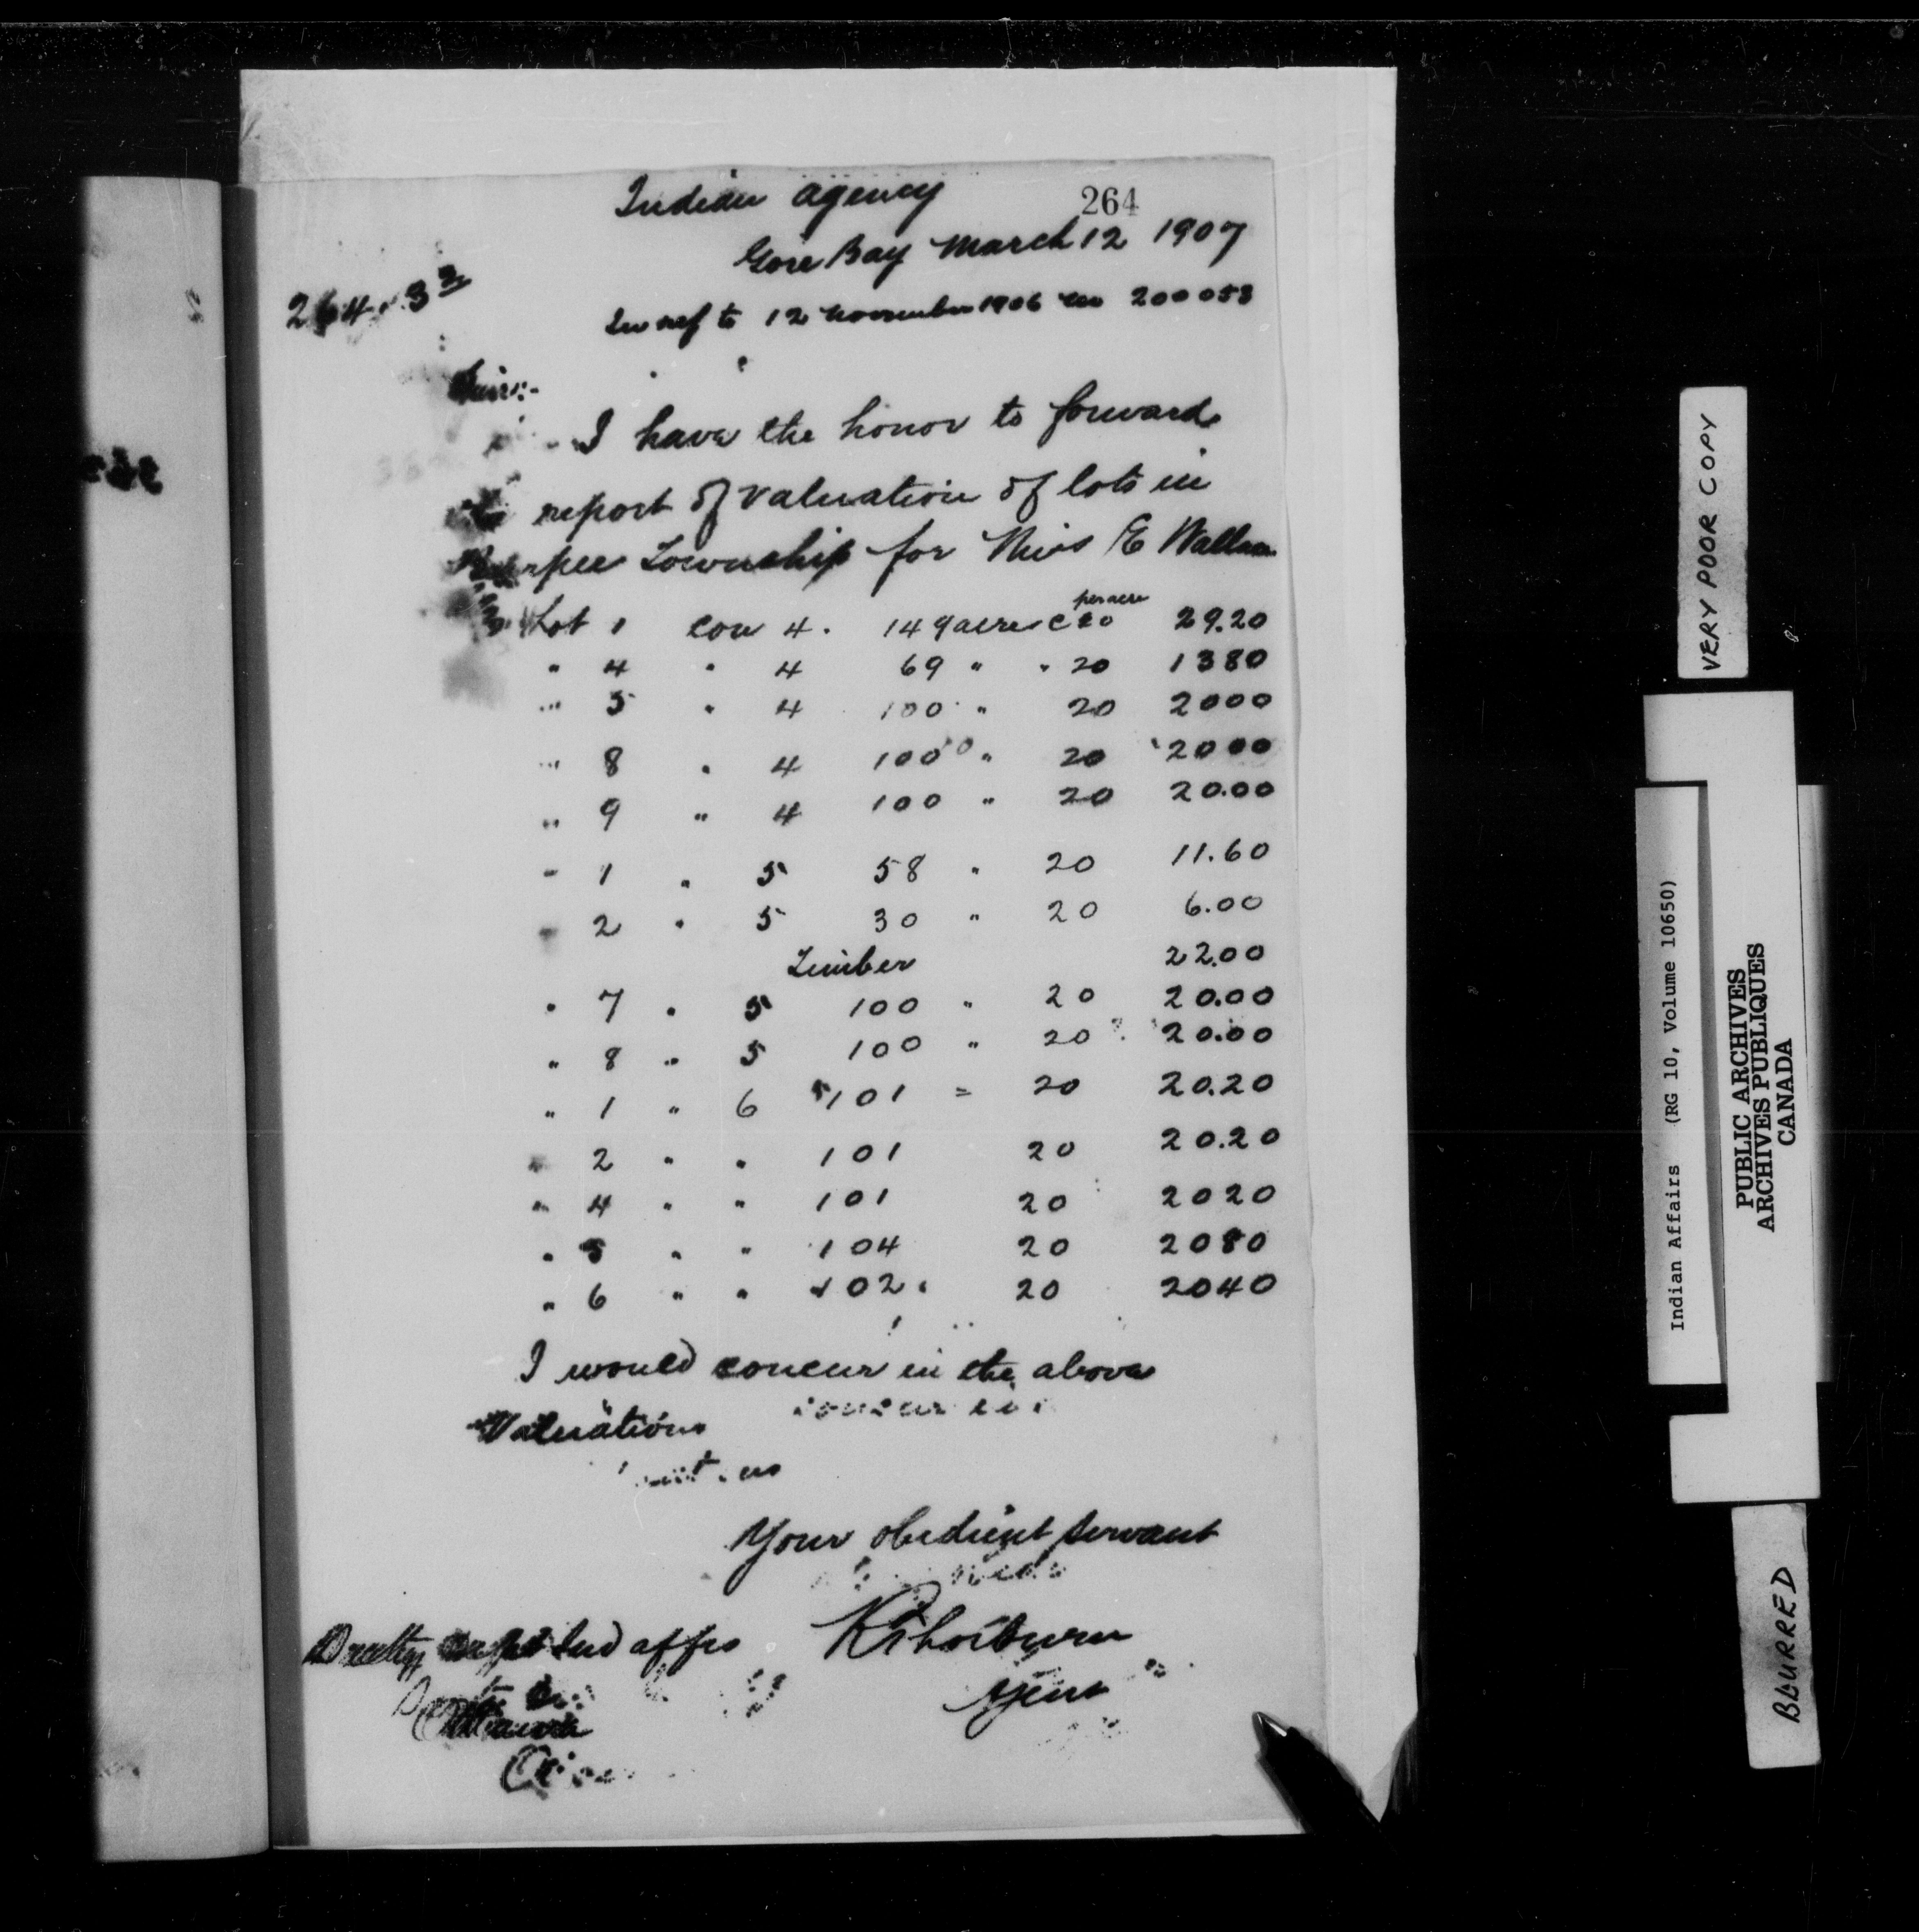 Indian Agency
264
Gore Bay March 12 1907
264-3 2
In ref to 12 November 1906 no 200053
Sir:-
I have the honor to forward
report of valuation of lots in
Burpee Township for Miss E Wallace
per acre
Lot 1 con 4. 149 acres C 20 29.20
" 4 " 4 69 " " 20 1380
" 5 " 4 100 " 20 2000
" 8 " 4 100 " 20 2000
" 9 " 4 100 " 20 20.00
" 1 " 5 58 " 20 11.60
" 2 " 5 30 " 20 6.00
Timber 22.00
" 7 " 5 100 " 20 20.00
" 8 " 5 100 " 20 20.00
" 1 " 6 101 = 20 20.20
" 2 " " 101 20 20.20
" 4 " " 101 20 2020
" 5 " " 104 20 2080
" 6 " " 102 20 2040
I would concur in the above
Valuations
Your obedient servant
Ind affrs
Agent
Ottawa
VERY POOR COPY
Indian Affairs (RG 10, Volume 10650)
PUBLIC ARCHIVES
ARCHIVES PUBLIQUES
CANADA
BLURRED